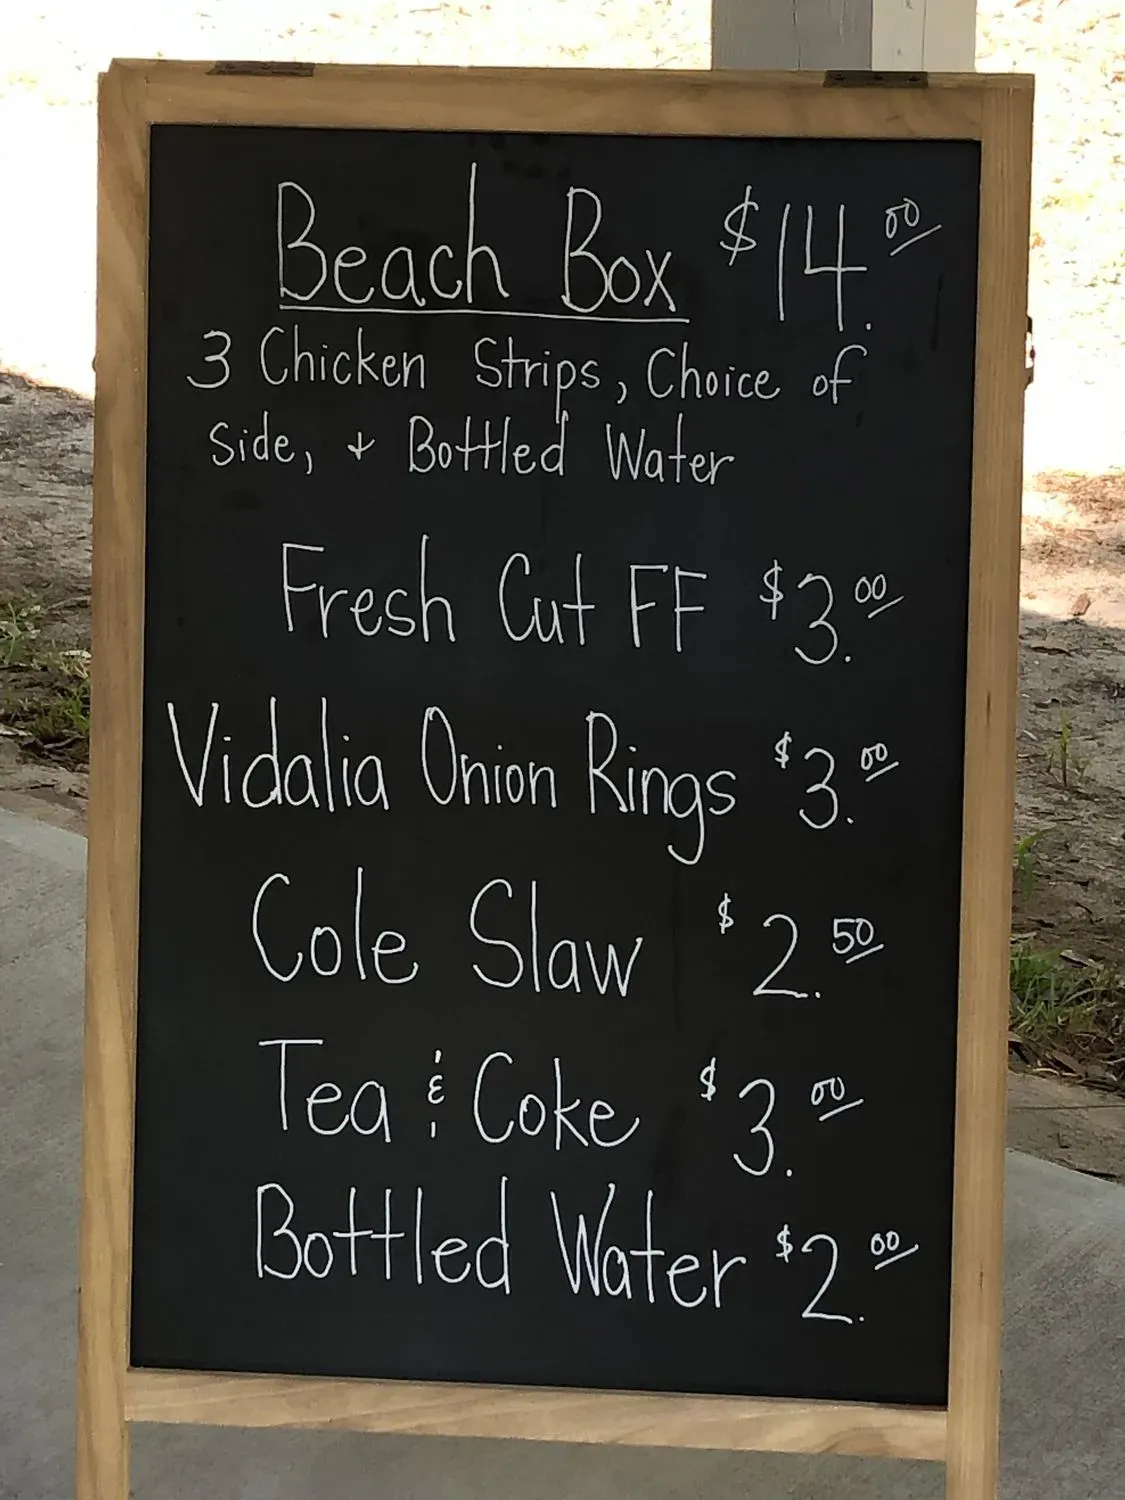 Beach Box $14.00
3 Chicken Strips, Choice of
side, + Bottled Water
Fresh Cut FF $3.00
Vidalia Onion Rings $3.00
Cole Slaw $2.50
Tea & Coke $3.00
Bottled Water $2.00